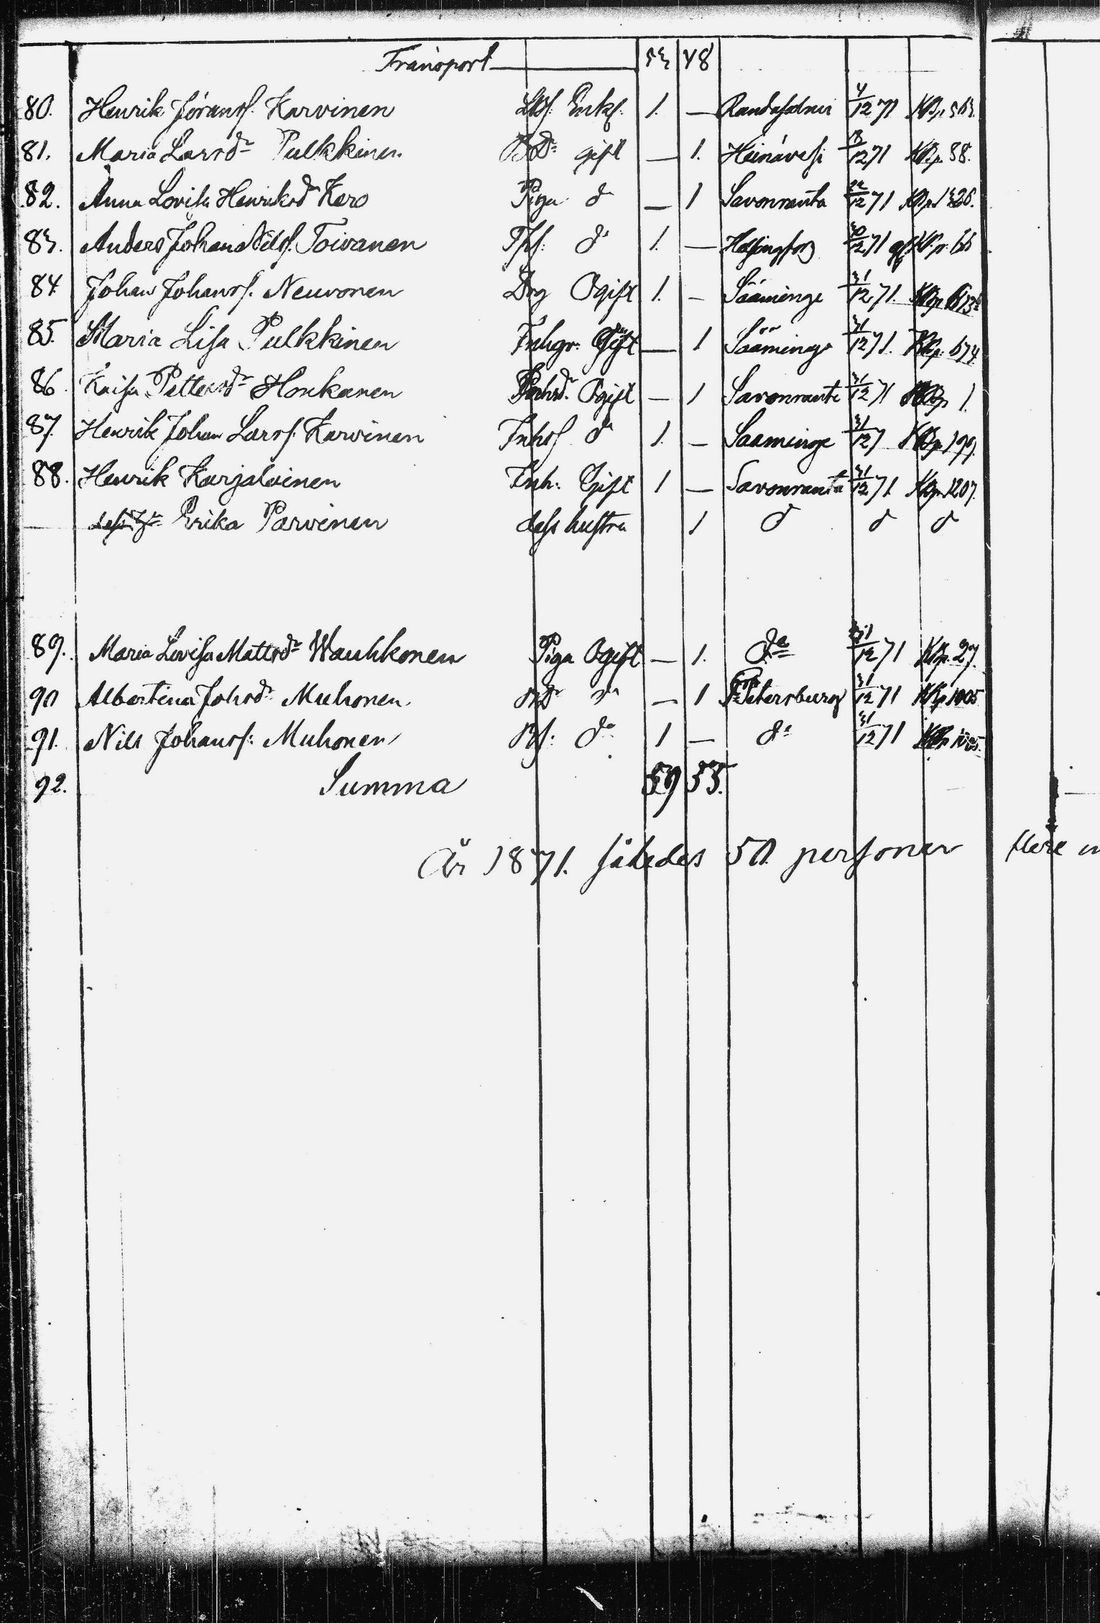 Transport 53 48
80. Henrik Göransf. Karvinen Enkf. 1. — Randasalmi 4/12 71
81. Maria Larsdr Pulkkinen gift — 1. Heinävesi 18/12 71 KBp. 88.
82. Anna Lovisa Henriksdr Kero Piga do — 1 Savonranta 22/12 71
83. Anders Johan Nilsf. Toivanen do 1. — Helsingfors 30/12 71
84 Johan Johansf. Neuvonen Drg Ogift 1. — Sääminge 31/12 71.
85. Maria Lisa Pulkkinen Inhgr. Ogift — 1 Sääminge 31/12 71. KBp. 674
86. Kaisa Pettersdr Honkanen Ogift — 1 Savonranta 31/12 71 KBp 1.
87. Henrik Johan Larsf. Karvinen Inhsf do 1. — Saaminge 31/12 7 KBp. 199.
88. Henrik Karjalainen Inh. Gift 1 — Savonranta 31/12 71. KBp. 1207.
Erika Parvinen dess hustru 1 do do do
89. Maria Lovisa Mattsdr Wauhkonen Piga Ogift — 1. do 31/12 71 KBp. 27.
90 Albertina Johsdr Muhonen do — 1 St Petersburg 31/12 71 KBp 1005
91. Nils Johansf: Muhonen do 1 — do 31/12 71
92. Summa 59 55.
År 1871. således 50 personer flere